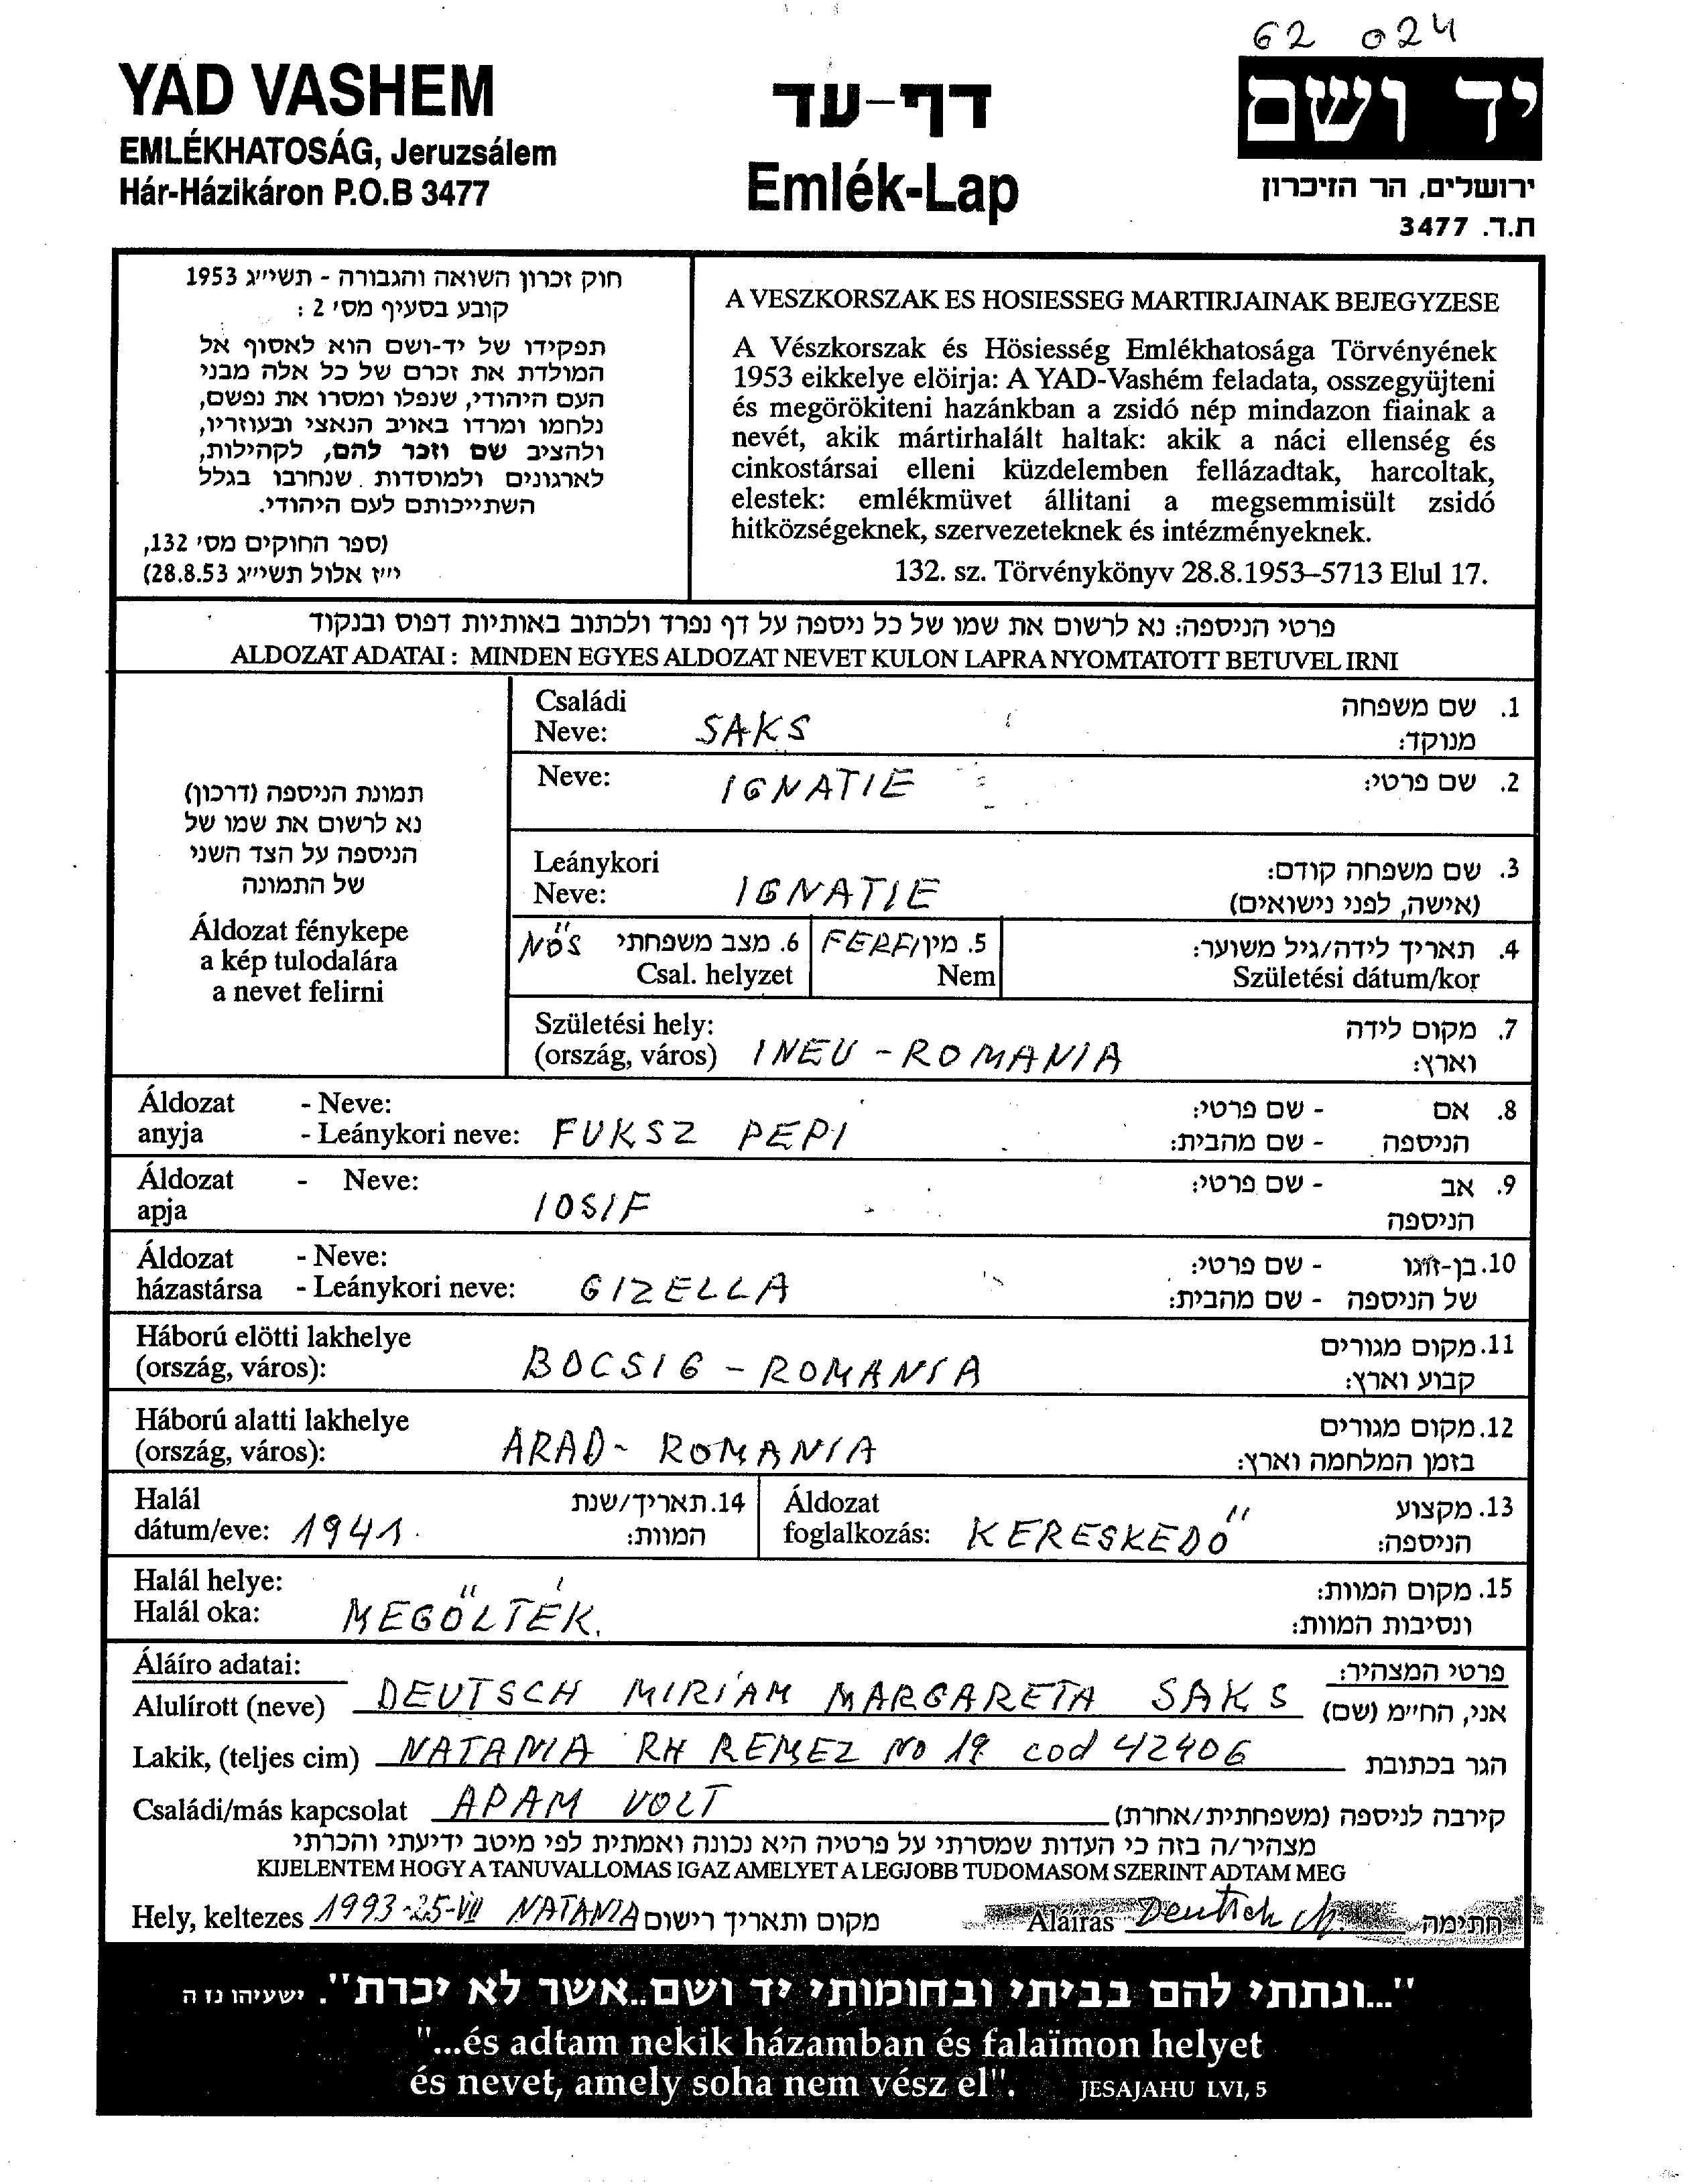 62 024
YAD VASHEM
EMLÉKHATOSÁG, Jeruzsálem
Hár-Házikáron P.O.B 3477
דף-עד
Emlék-Lap
יד ושם
ירושלים, הר הזיכרון
ת.ד. 3477
חוק זכרון השואה והגבורה - תשי״ג 1953
קובע בסעיף מס׳ 2 :
תפקידו של יד-ושם הוא לאסוף אל
המולדת את זכרם של כל אלה מבני
העם היהודי, שנפלו ומסרו את נפשם,
נלחמו ומרדו באויב הנאצי ובעוזריו,
ולהציב שם וזכר להם, לקהילות,
לארגונים ולמוסדות שנחרבו בגלל
השתייכותם לעם היהודי.
(ספר החוקים מס׳ 132,
י״ז אלול תשי״ג 28.8.53)
A VESZKORSZAK ES HOSIESSEG MARTIRJAINAK BEJEGYZESE
A Vészkorszak és Hösiesség Emlékhatosága Törvényének
1953 eikkelye elöirja: A YAD-Vashém feladata, osszegyüjteni
és megörökiteni hazánkban a zsidó nép mindazon fiainak a
nevét, akik mártirhalált haltak: akik a náci ellenség és
cinkostársai elleni küzdelemben fellázadtak, harcoltak,
elestek: emlékmüvet állitani a megsemmisült zsidó
hitközségeknek, szervezeteknek és intézményeknek.
132. sz. Törvénykönyv 28.8.1953–5713 Elul 17.
פרטי הניספה: נא לרשום את שמו של כל ניספה על דף נפרד ולכתוב באותיות דפוס ובנקוד
ALDOZAT ADATAI : MINDEN EGYES ALDOZAT NEVET KULON LAPRA NYOMTATOTT BETUVEL IRNI
תמונת הניספה (דרכון)
נא לרשום את שמו של
הניספה על הצד השני
של התמונה
Áldozat fénykepe
a kép tulodalára
a nevet felirni
Családi
Neve: SAKS
1. שם משפחה
מנוקד:
Neve: IGNATIE
2. שם פרטי:
Leánykori
Neve: IGNATIE
3. שם משפחה קודם:
(אישה, לפני נישואים)
NŐS 6. מצב משפחתי
Csal. helyzet
FERFI 5. מין
Nem
4. תאריך לידה/גיל משוער:
Születési dátum/kor
Születési hely:
(ország, város) INEU - ROMANIA
7. מקום לידה
וארץ:
Áldozat - Neve:
anyja - Leánykori neve: FUKSZ PEPI
8. אם - שם פרטי:
הניספה - שם מהבית:
Áldozat - Neve:
apja IOSIF
9. אב - שם פרטי:
הניספה
Áldozat - Neve:
házastársa - Leánykori neve: GIZELLA
10. בן-זוגו - שם פרטי:
של הניספה - שם מהבית:
Háború elötti lakhelye
(ország, város): BOCSIG - ROMANIA
11. מקום מגורים
קבוע וארץ:
Háború alatti lakhelye
(ország, város): ARAD - ROMANIA
12. מקום מגורים
בזמן המלחמה וארץ:
Halál
dátum/eve: 1941.
14. תאריך/שנת
המוות:
Áldozat
foglalkozás: KERESKEDŐ
13. מקצוע
הניספה:
Halál helye:
Halál oka: MEGŐLTÉK.
15. מקום המוות:
ונסיבות המוות:
Áláíro adatai:
פרטי המצהיר:
Alulírott (neve) DEUTSCH MIRIAM MARGARETA SAKS אני, הח״מ (שם)
Lakik, (teljes cim) NATANIA RH REMEZ NO 19 cod 42406 הגר בכתובת
Családi/más kapcsolat APAM VOLT קירבה לניספה (משפחתית/אחרת)
מצהיר/ה בזה כי העדות שמסרתי על פרטיה היא נכונה ואמתית לפי מיטב ידיעתי והכרתי
KIJELENTEM HOGY A TANUVALLOMAS IGAZ AMELYET A LEGJOBB TUDOMASOM SZERINT ADTAM MEG
Hely, keltezes 1993-25-VII NATANIA מקום ותאריך רישום Aláírás Deutsch M. חתימה
"...ונתתי להם בביתי ובחומותי יד ושם..אשר לא יכרת". ישעיהו נו ה
"...és adtam nekik házamban és falaïmon helyet
és nevet, amely soha nem vész el". JESAJAHU LVI, 5